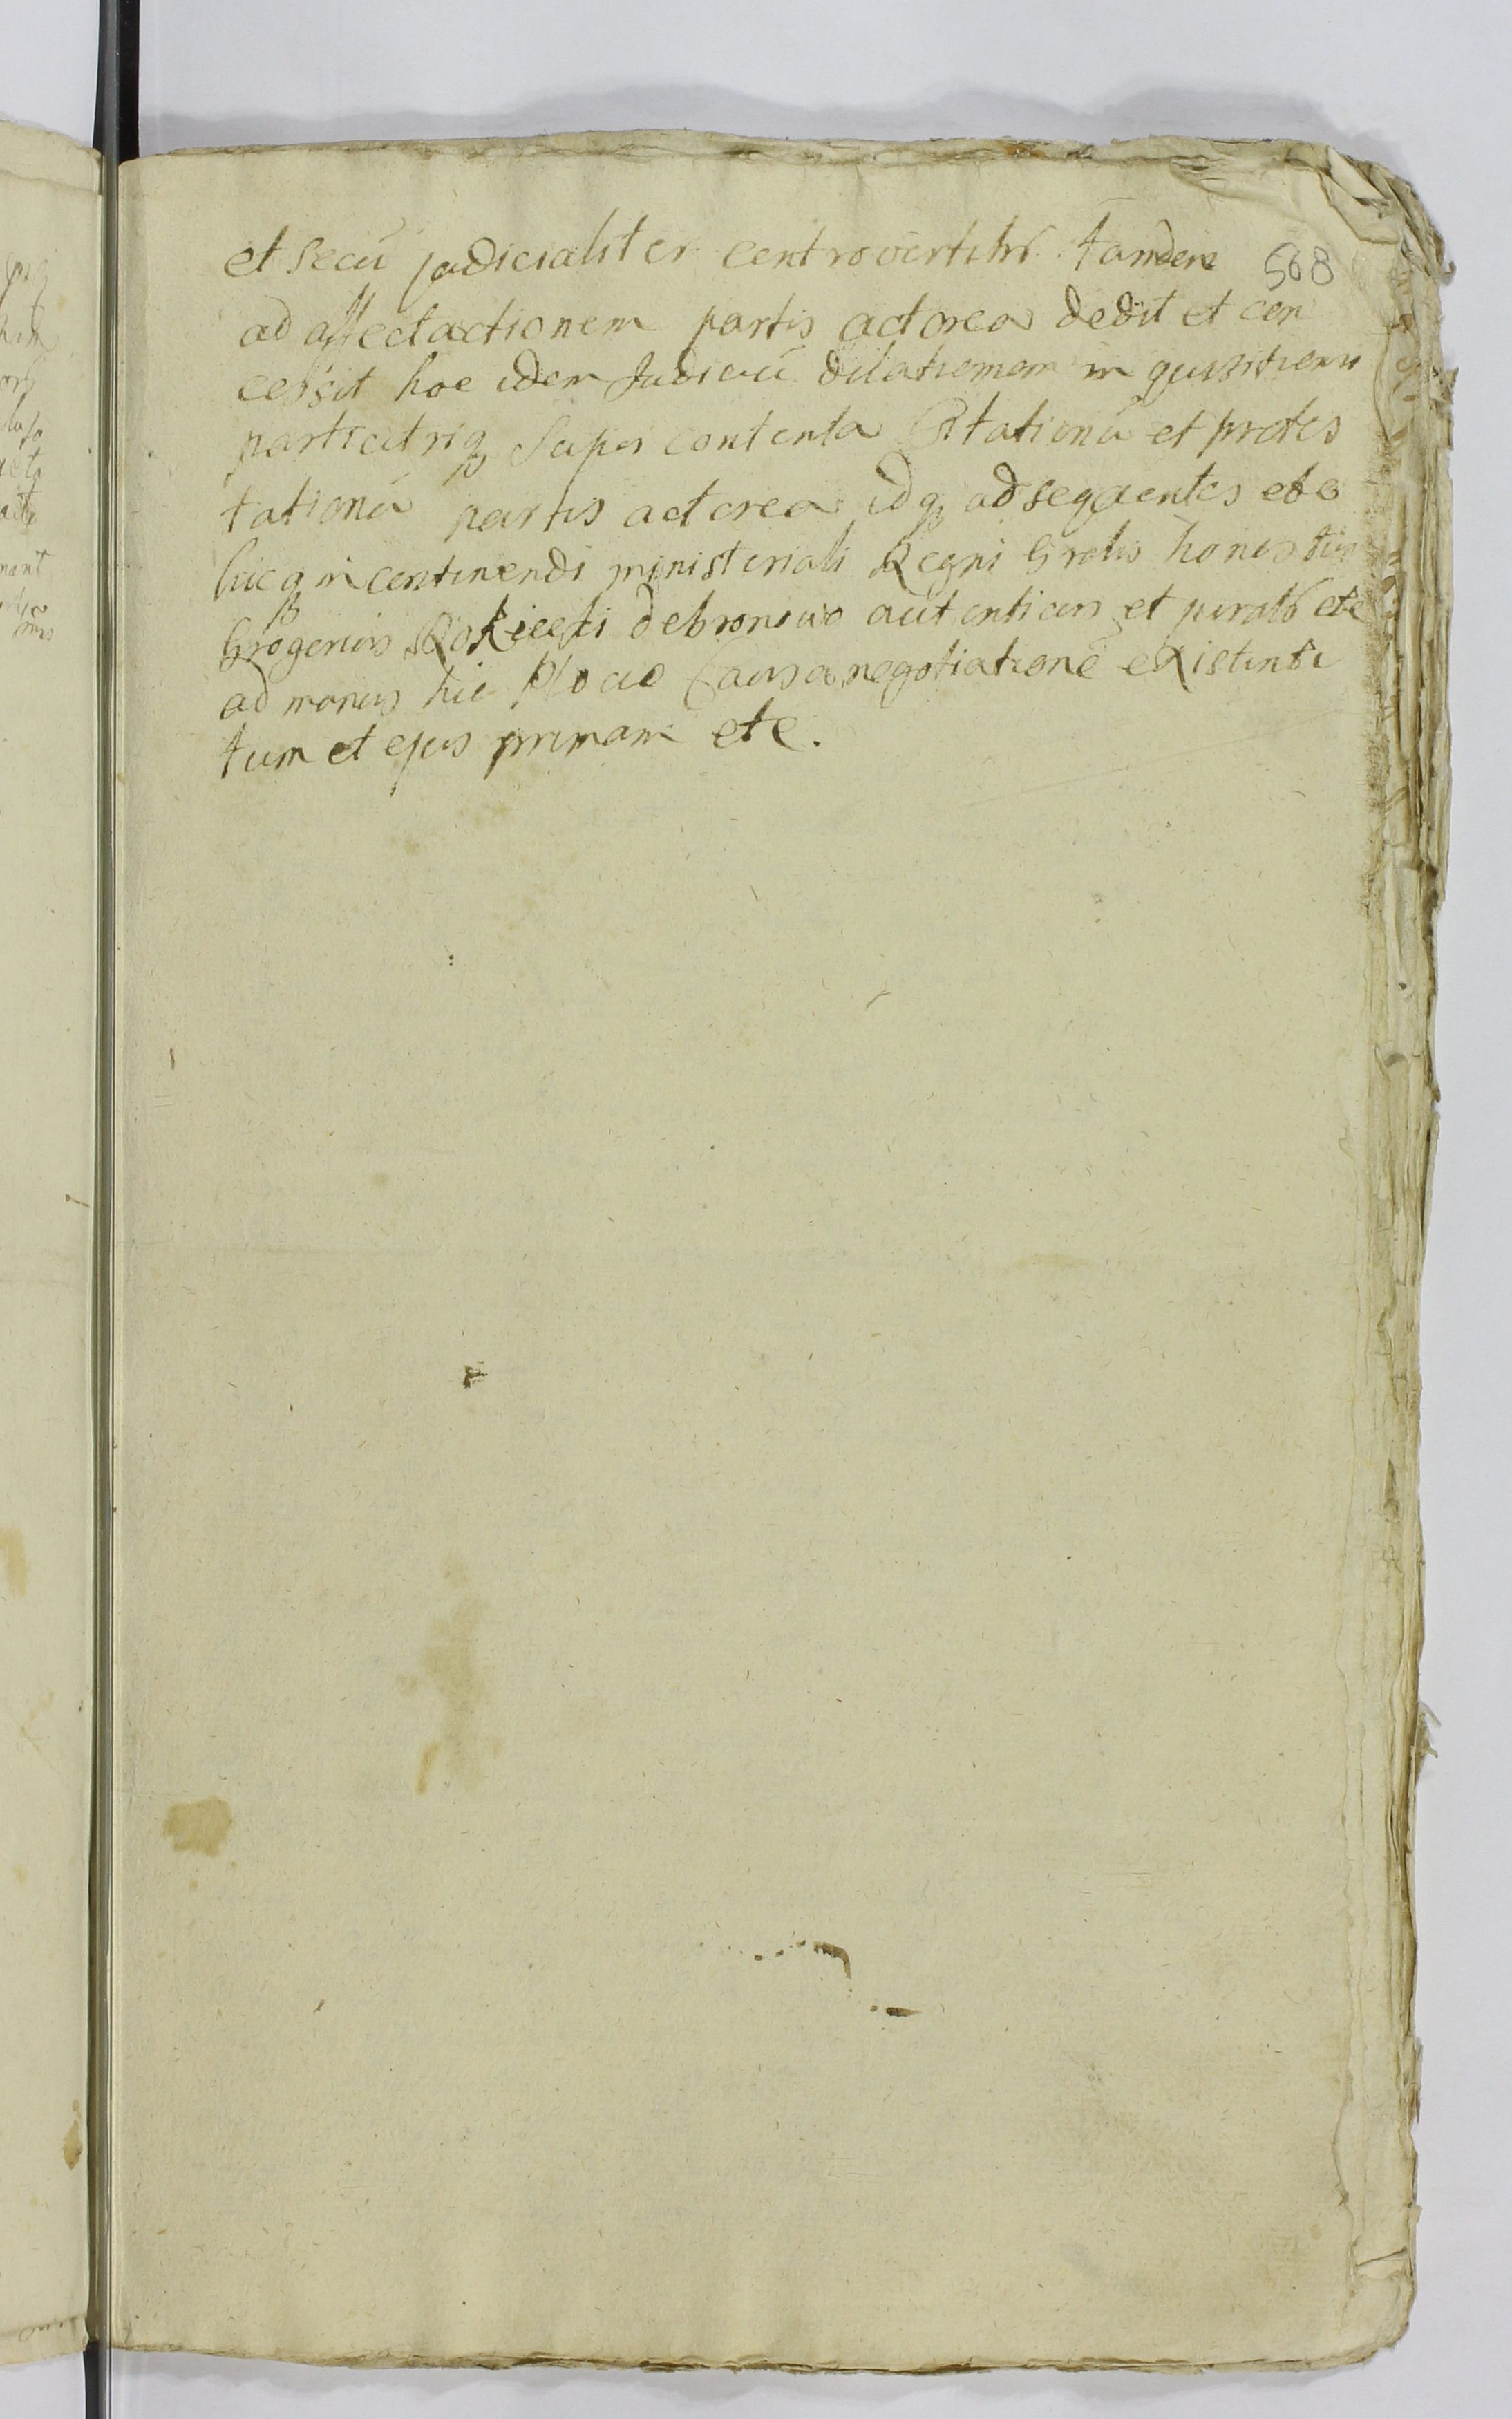 et secú judicialiter controvertibs. tandem 508
ad affectactionem partis actorea dedit et con
cessit hoc idem Judiciú dilationem in quisitionis
parti utriq super contenta Citationú et protes
tationú partis actorea idq ad seqaentes etc
hicq in continendi ministeriali Regni Gralis honestum
Grogerius Rokicki debroniwo autenticus et juratō etc
ad manus hic Plocie Causa negotiationē existenti
tum et ejus primam etc.